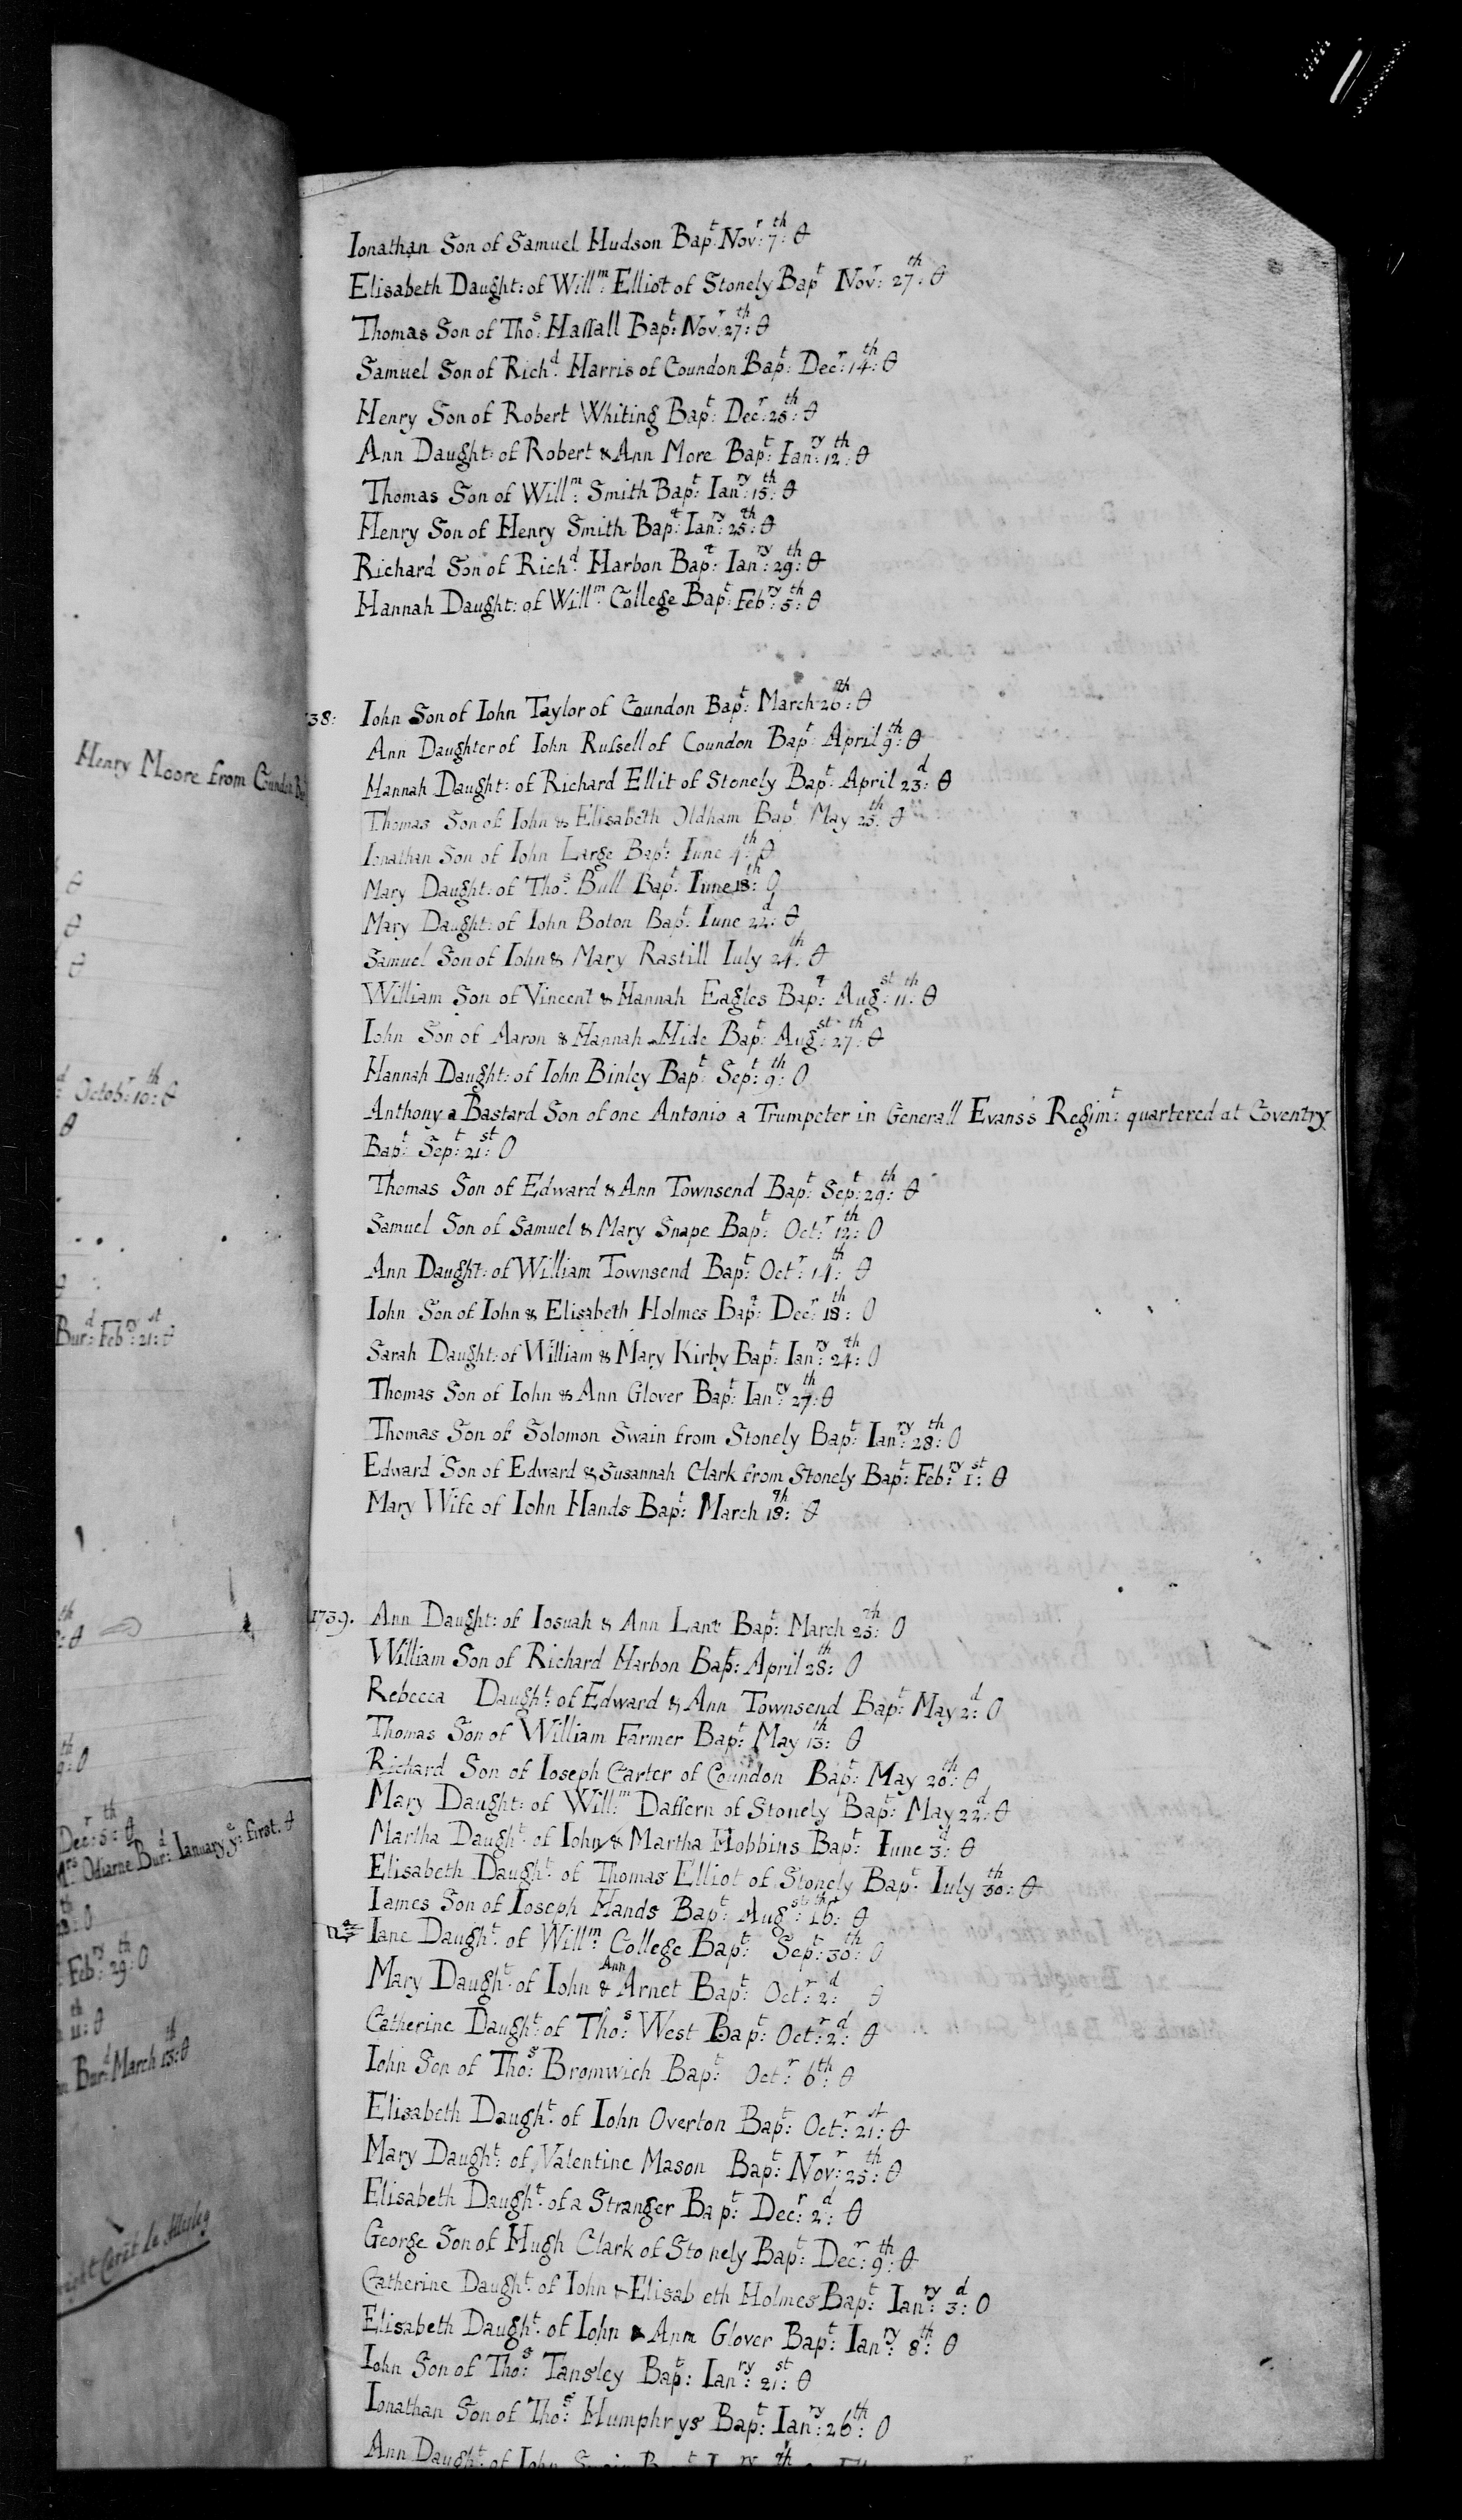 Ionathan Son of Samuel Hudson Bapt: Novr: 7th: θ
Elisabeth Daught: of Willm: Elliot of Stonely Bapt Novr: 27th: θ
Thomas Son of Thos: Haſsall Bapt: Novr: 27th: θ
Samuel Son of Richd: Harris of Coundon Bapt: Decr: 14th: θ
Henry Son of Robert Whiting Bapt: Decr: 28th: θ
Ann Daught: of Robert & Ann More Bapt: Ianry: 12th: θ
Thomas Son of Willm: Smith Bapt: Ianry: 15th: θ
Henry Son of Henry Smith Bapt: Ianry: 25th: θ
Richard Son of Richd: Harbon Bapt: Ianry: 29th: θ
Hannah Daught: of Willm: College Bapt: Febry: 5th: θ
38: Iohn Son of Iohn Taylor of Coundon Bapt: March 26th: θ
Ann Daughter of Iohn Ruſsell of Coundon Bapt: April 9th: θ
Hannah Daught: of Richard Ellit of Stonely Bapt: April 23d: θ
Thomas Son of Iohn & Elisabeth Oldham Bapt: May 25th: θ
Ionathan Son of Iohn Large Bapt: Iune 4th: θ
Mary Daught: of Thos: Bull Bapt: Iune 18th: 0
Mary Daught: of Iohn Boton Bapt: Iune 22d: θ
Samuel Son of Iohn & Mary Rastill Iuly 24th: θ
William Son of Vincent & Hannah Eagles Bapt: Augst: 11th: θ
Iohn Son of Aaron & Hannah Hide Bapt: Augst: 27th: θ
Hannah Daught: of Iohn Binley Bapt: Sept: 9th: 0
Anthony a Bastard Son of one Antonio a Trumpeter in Generall Evans's Regimt: quartered at Coventry
Bapt: Sept: 21st: 0
Thomas Son of Edward & Ann Townsend Bapt: Sept: 29th: θ
Samuel Son of Samuel & Mary Snape Bapt: Octr: 12th: 0
Ann Daught: of William Townsend Bapt: Octr: 14th: θ
Iohn Son of Iohn & Elisabeth Holmes Bapt: Decr: 18th: 0
Sarah Daught: of William & Mary Kirby Bapt: Ianry: 24th: 0
Thomas Son of Iohn & Ann Glover Bapt: Ianry: 27th: θ
Thomas Son of Solomon Swain from Stonely Bapt: Ianry: 28th: 0
Edward Son of Edward & Susannah Clark from Stonely Bapt: Febry: 1st: θ
Mary Wife of Iohn Hands Bapt: March 18th: θ
1739. Ann Daught: of Iosuah & Ann Lant Bapt: March 25th: 0
William Son of Richard Harbon Bapt: April 28th: 0
Rebecca Daught: of Edward & Ann Townsend Bapt: May 2d: 0
Thomas Son of William Farmer Bapt: May 13th: 0
Richard Son of Ioseph Carter of Coundon Bapt: May 20th: θ
Mary Daught: of Willm: Daffern of Stonely Bapt: May 22d: θ
Martha Daught: of Iohn & Martha Hobbins Bapt: Iune 3d: θ
Elisabeth Daught: of Thomas Elliot of Stonely Bapt: Iuly 30th: θ
Iames Son of Ioseph Hands Bapt: Augst: 16th: θ
Iane Daught: of Willm: College Bapt: Sept: 30th: 0
Mary Daught: of Iohn & Ann Arnet Bapt: Octr: 2d: θ
Catherine Daught: of Thos: West Bapt: Octr: 2d: θ
Iohn Son of Thos: Bromwich Bapt: Octr: 6th: θ
Elisabeth Daught: of Iohn Overton Bapt: Octr: 21st: θ
Mary Daught: of Valentine Mason Bapt: Novr: 25th: θ
Elisabeth Daught: of a Stranger Bapt: Decr: 2d: θ
George Son of Hugh Clark of Stonely Bapt: Decr: 9th: θ
Catherine Daught: of Iohn & Elisabeth Holmes Bapt: Ianry: 3d: 0
Elisabeth Daught: of Iohn & Ann Glover Bapt: Ianry: 8th: θ
Iohn Son of Thos: Tansley Bapt: Ianry: 21st: θ
Ionathan Son of Thos: Humphrys Bapt: Ianry: 26th: 0
Ann Daught: of Iohn
Henry Moore from Coundon
Octobr: 10th: θ
Burd: Febry: 21st: θ
Decr: 5th: θ
Mrs: Odiarne Burd: Ianuary ye: first. θ
Febry: 29th: 0
11th: θ
Burd: March 13th: θ